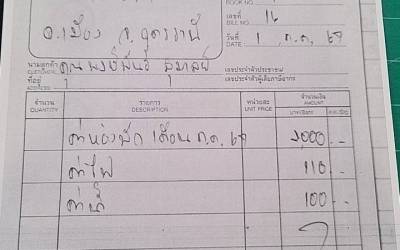 BOOK NO.
อ.เมือง จ.อุดรธานี
เลขที่ 16
BILL NO.
วันที่ 1 ต.ค. 67
DATE
นามลูกค้า คุณ
CUSTOMER
เลขประจำตัวประชาชน/
ที่อยู่
ADDRESS
เลขประจำตัวผู้เสียภาษีอากร
จำนวน รายการ หน่วยละ จำนวนเงิน
QUANTITY DESCRIPTION UNIT PRICE AMOUNT
ค่าห้องพัก เดือน ต.ค. 67 2000 .-
ค่าไฟ 110 .-
ค่าน้ำ 100 .-